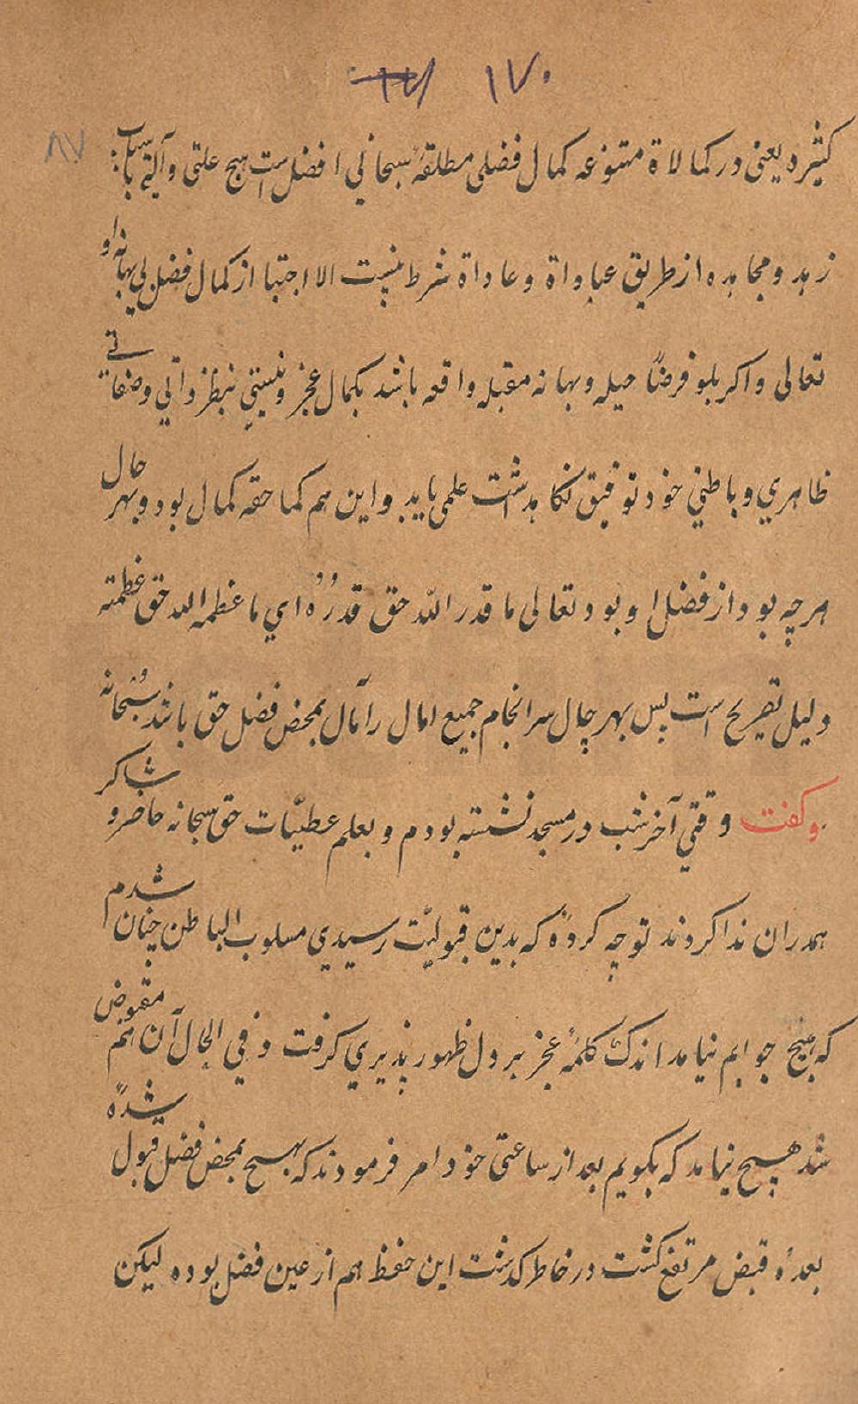 ۱۷۰
۸۷
کثیره یعنی در کمالاة متنوعه کمال فضلی مطلقهٔ سبحانی افضل است هیچ علتی و آلتی باسباب
زهد و مجاهده از طریق عباداة و عاداة شرط نیست الا اجتبا از کمال فضل بی بهانه او
تعالی و اکر بلو فرضاً حیله و بهانه مقبله واقعه باشد بکمال عجز و نیستی بنظر ذاتی و صفاتی
ظاهري و باطني خود توفیق نکاهداشت علمی باید و این هم کما حقه کمال بود و بهر حال
هرچه بود از فضل او بود تعالی ما قدر الله حق قدره اي ما عظمه الله حق عظمته
دلیل تصریح است پس بهر حال سرانجام جمیع امال را آمال بمحض فضل حق باشد سبحانه
و کفت وقتي آخر شب در مسجد نشسته بودم و بعلم عطیّات حق سبحانه حاضر و شاکر
همدران ندا کردند توجه کردهٔ که بدین قبولیّت رسیدي مسلوب الباطن چنان شدم
که هیچ جوابم نیامد اندک کلمهٔ عجز بر دل ظهور پذیري کرفت و في الحال آن هم مقبوض
شد هیچ نیامد که بکویم بعد از ساعتی خود امر فرمودند که بهیچ بمحض فضل قبول شدهٔ
بعدهٔ قبض مرتفع کشت در خاطر کذشت این حفظ هم از عین فضل بوده لیکن